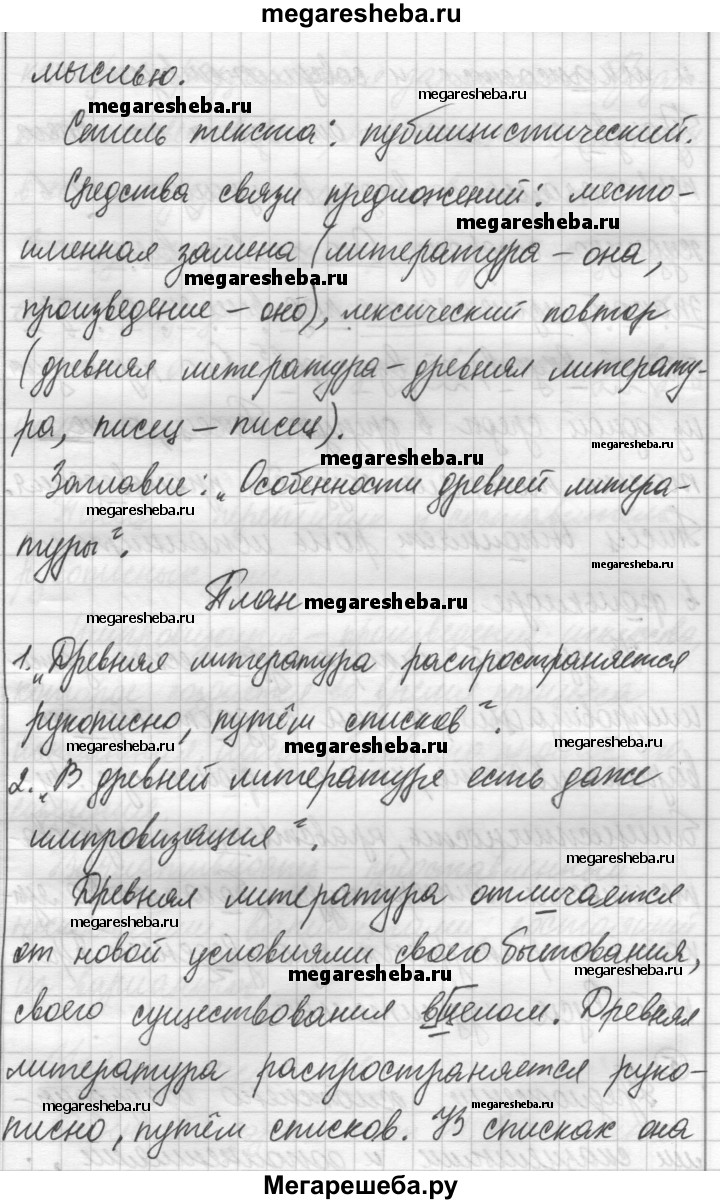 megaresheba.ru
мыслью.
megaresheba.ru
megaresheba.ru
Стиль текста: публицистический.
Средства связи предложений: место-
megaresheba.ru
именная замена (литература – она,
megaresheba.ru
произведение – оно), лексический повтор
(древняя литература – древняя литерату-
ра, писец – писец).
megaresheba.ru
megaresheba.ru
Заглавие: „Особенности древней литера-
megaresheba.ru
туры".
megaresheba.ru
План
megaresheba.ru
megaresheba.ru
1. „Древняя литература распространяется
рукописно, путём списков".
megaresheba.ru
megaresheba.ru
megaresheba.ru
2. „В древней литературе есть даже
импровизация".
megaresheba.ru
Древняя литература отличается
megaresheba.ru
от новой условиями своего бытования,
megaresheba.ru
megaresheba.ru
своего существования в целом. Древняя
литература распространяется руко-
megaresheba.ru
megaresheba.ru
писно, путём списков. Из списках она
Мегарешеба.ру